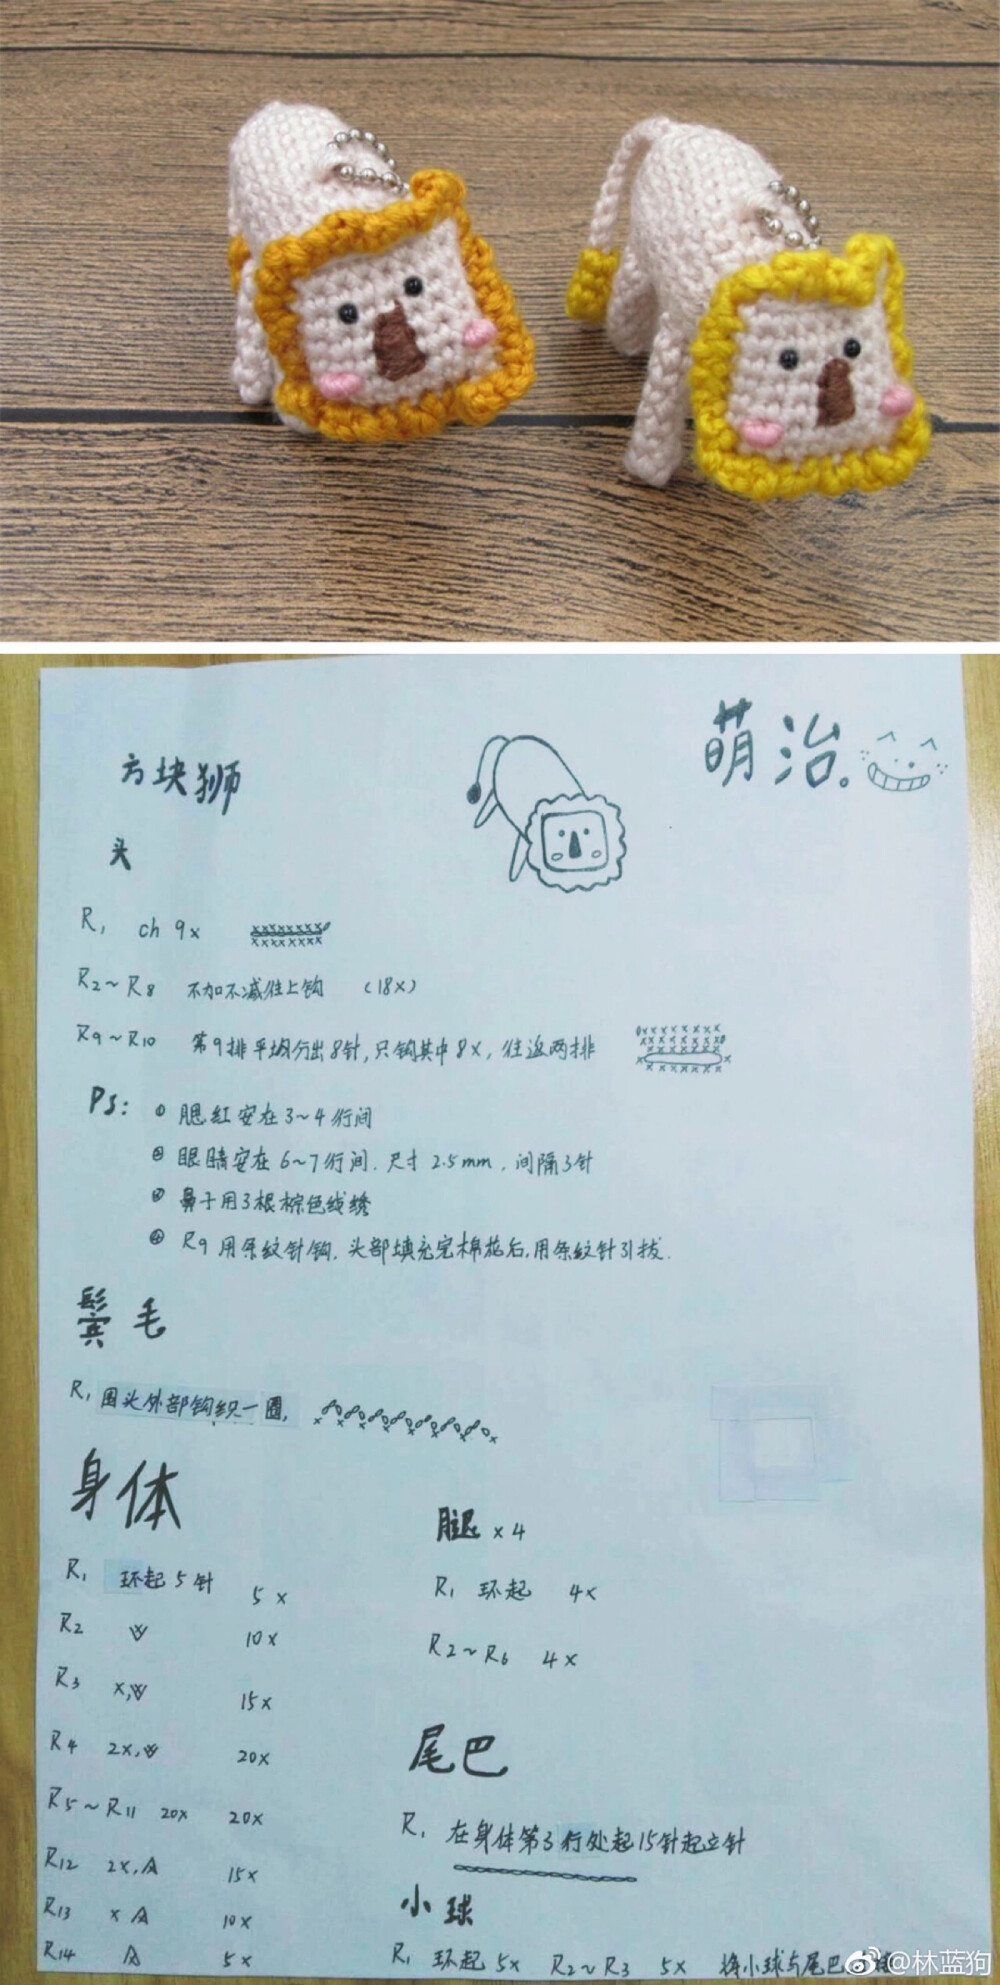 萌治。
方块狮
头
R1 ch 9x
R2~R8 不加不减往上钩 (18x)
R9~R10 第9排平均分出8针,只钩其中8x,往返两排
Ps: ① 腮红安在3~4行间
② 眼睛安在6~7行间.尺寸2.5mm.间隔3针
③ 鼻子用3根棕色线绣
④ R9用条纹针钩.头部填充完棉花后,用条纹针引拔.
鬃毛
R1 围头外部钩织一圈,
身体
R1 环起5针 5x
R2 V 10x
R3 x,V 15x
R4 2x,V 20x
R5~R11 20x 20x
R12 2x,A 15x
R13 x A 10x
R14 A 5x
腿x4
R1 环起 4x
R2~R6 4x
尾巴
R1 在身体第3行处起15针起立针
小球
R1 环起 5x R2~R3 5x 将小球与尾巴
@林蓝狗